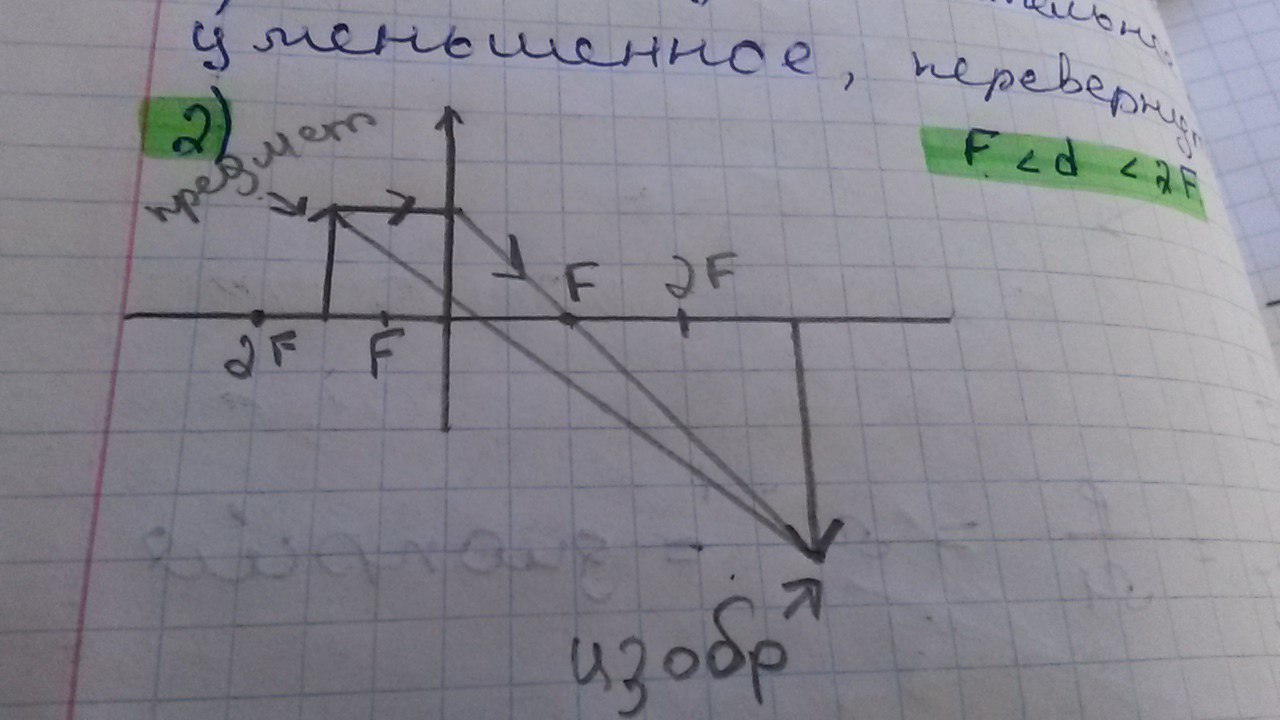 уменьшенное, переверну
2)
предмет
F < d < 2F
F
2F
2F
F
изобр